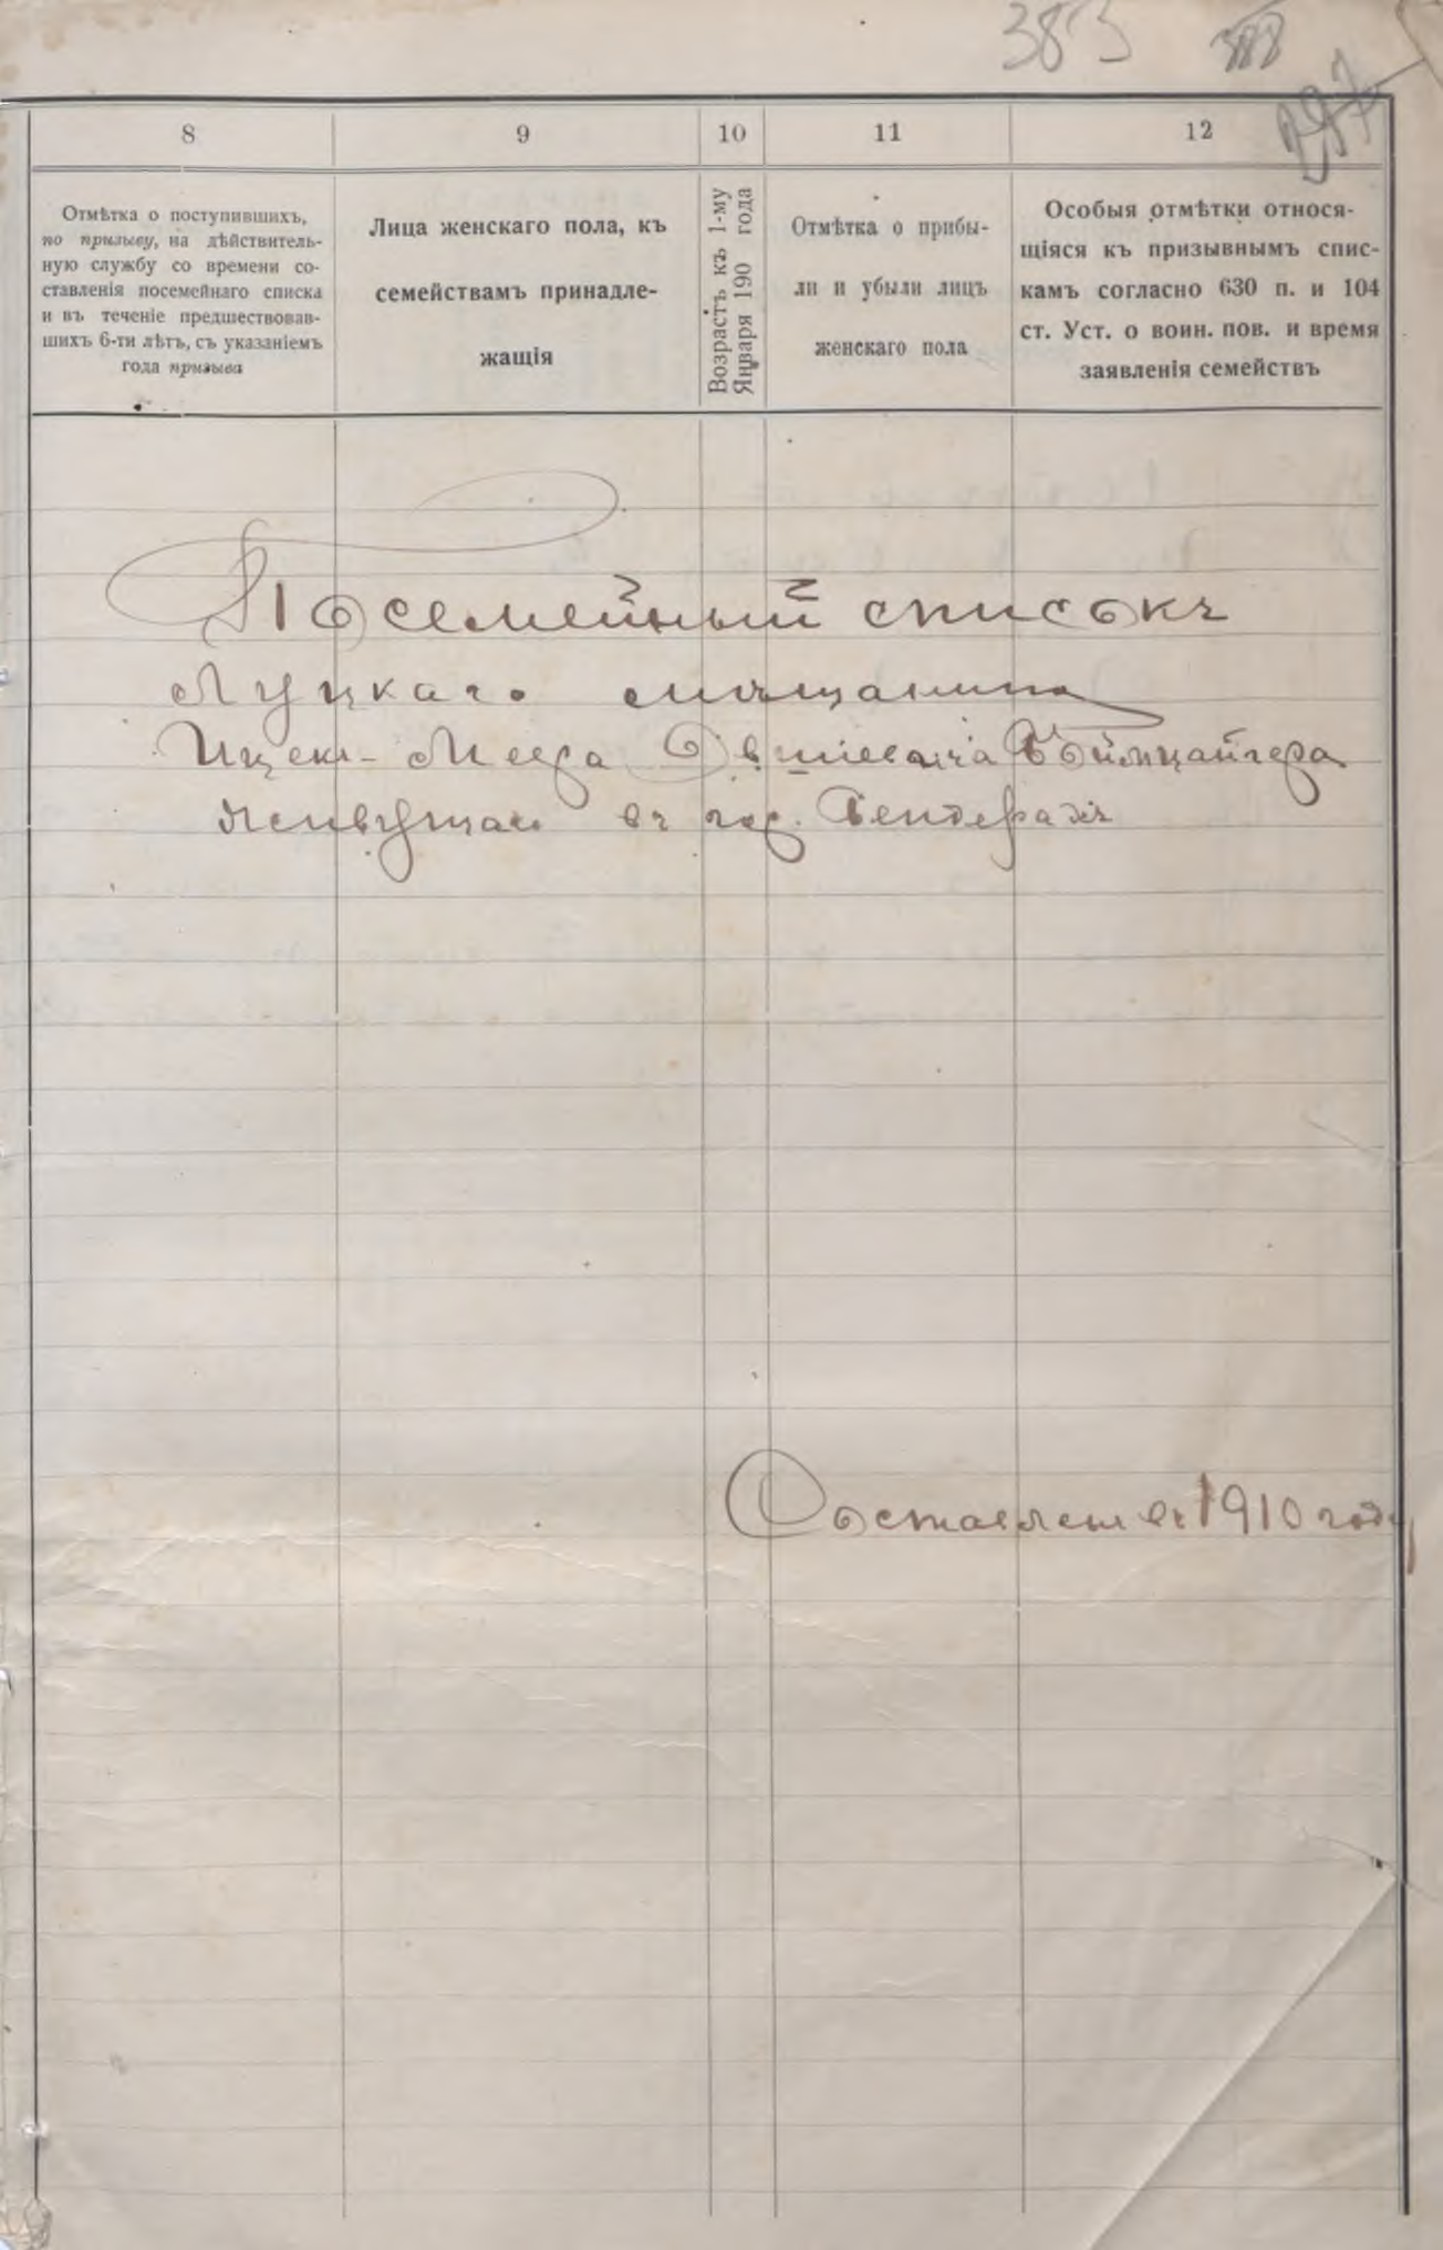 383 388
287
8 9 10 11 12
Отмѣтка о поступившихъ,
по призыву, на дѣйствитель-
ную службу со времени со-
ставленія посемейнаго списка
и въ теченіе предшествовав-
шихъ 6-ти лѣтъ, съ указаніемъ
года призыва
Лица женскаго пола, къ
семействамъ принадле-
жащія
Возрастъ къ 1-му
Января 190 года
Отмѣтка о прибы-
ли и убыли лицъ
женскаго пола
Особыя отмѣтки относя-
щіяся къ призывнымъ спис-
камъ согласно 630 п. и 104
ст. Уст. о воин. пов. и время
заявленія семействъ
Посемейный списокъ
Луцкаго мѣщанина
Ицек-Меера
живущаго въ гор. Бендерахъ
Составлен въ 1910 году